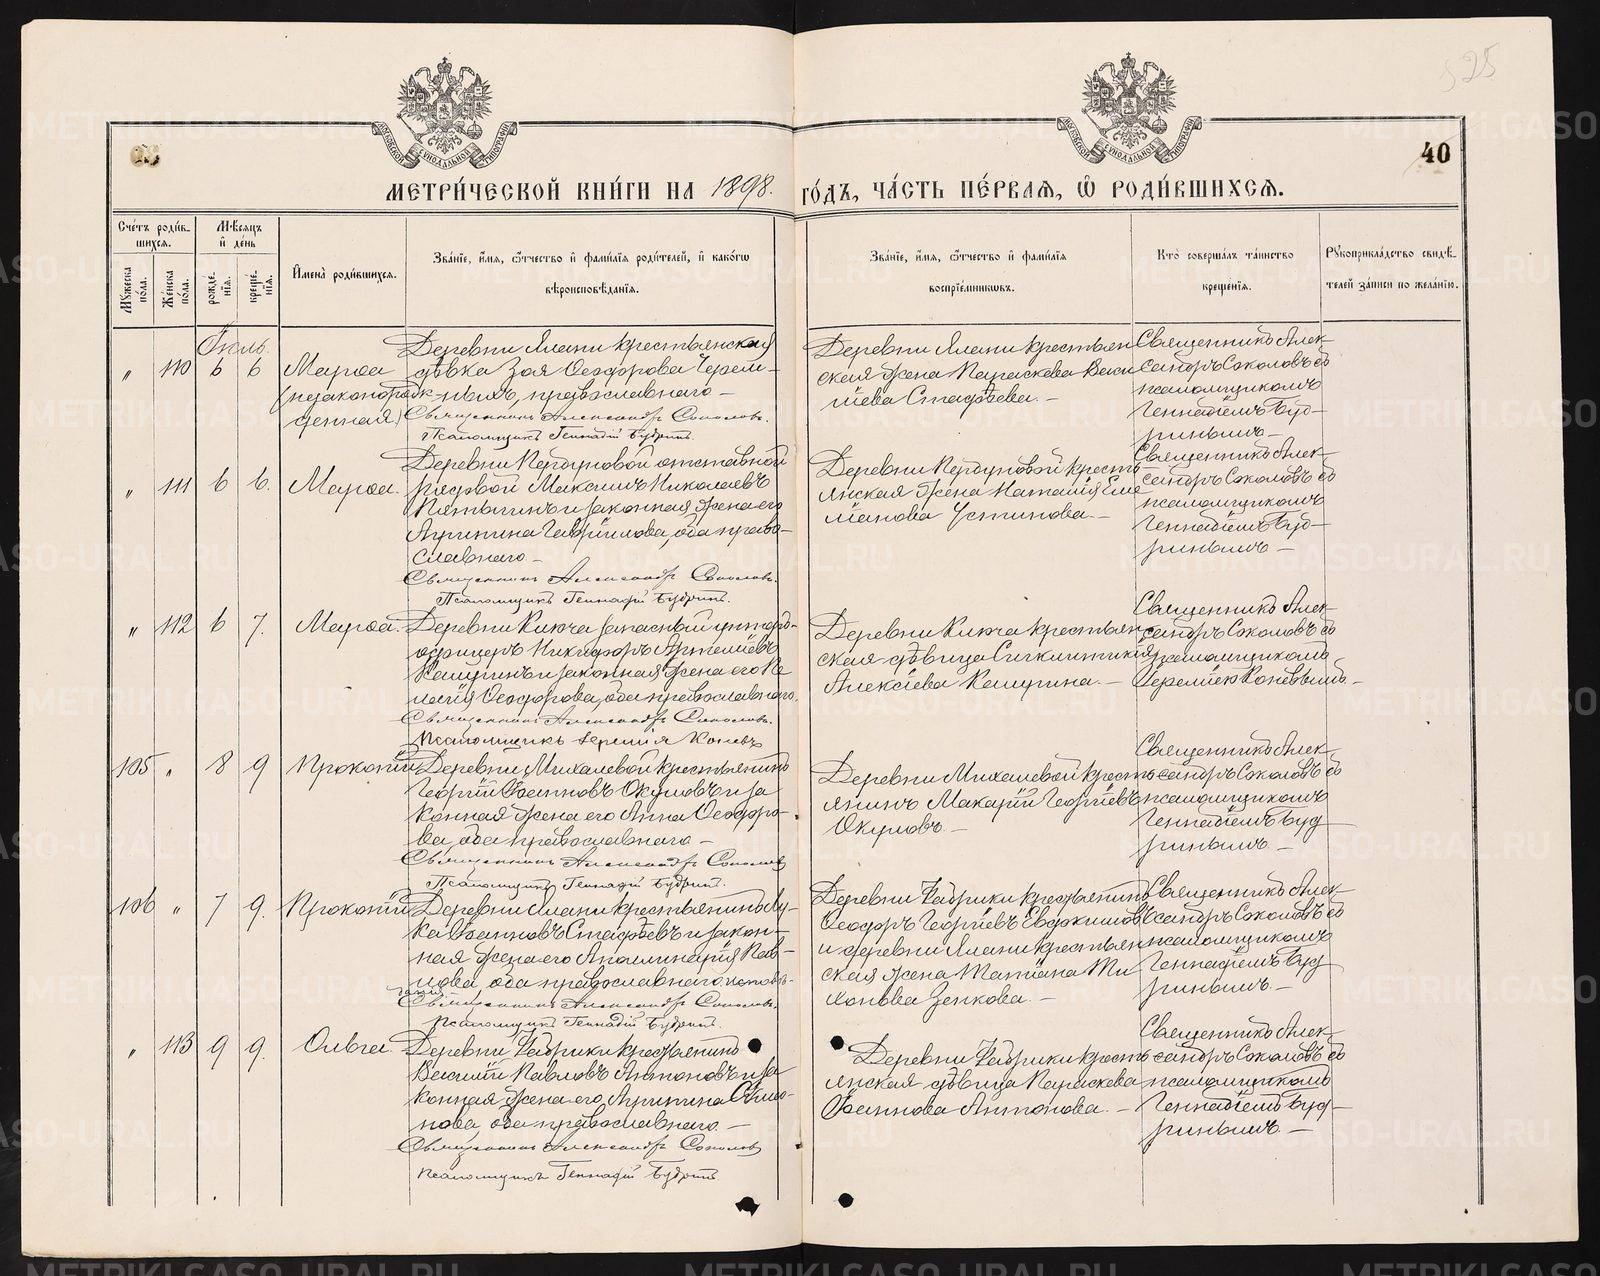 525
40
МЕТРИ́ЧЕСКОЙ КНИ́ГИ НА 1898. ГО́ДЪ, ЧА́СТЬ ПЕ́РВАЯ, Ѡ҆ РОДИ́ВШИХСЯ.
Сче́тъ роди́в-
шихся.
Мѣ́сяцъ
и҆ де́нь
Му́жеска по́ла.
Же́нска по́ла.
рожде́нїя.
креще́нїя.
И҆мена̀ роди́вшихся.
Зва́нїе, и҆́мя, ѻ҆́тчество и҆ фами́лїя роди́телей, и҆ како́гѡ
вѣроисповѣ́данїя.
Зва́нїе, и҆́мя, ѻ҆́тчество и҆ фами́лїя
воспрїе́мниковъ.
Кто̀ соверша́лъ та́инство
креще́нїя.
Рукоприкла́дство свидѣ́-
телей за́писи по жела́нїю.
Іюль.
„ 110 6 6 Марѳа (незаконорож-
денная)
Деревни Ялани крестьянская
дѣвка Зоя Ѳеодорова Черем-
ныхъ, православнаго -
Священникъ Александръ Соколовъ.
Псаломщикъ Геннадій Будринъ.
Деревни Ялани крестьян
ская жена Параскева Васи
ліева Стафѣева. -
Священникъ Алек-
сандръ Соколовъ съ
псаломщикомъ
Геннадіемъ Буд-
ринымъ -
„ 111 6 6. Марѳа.
Деревни отставной
рядовой Максимъ Николаевъ
и законная жена его
Агрипина Гавріилова, оба право-
славнаго -
Священникъ Александръ Соколовъ.
Псаломщикъ Геннадій Будринъ.
Деревни кресть
янская жена Наталія Еме
ліанова Устинова. -
Священникъ Алек-
сандръ Соколовъ съ
псаломщикомъ
Геннадіемъ Буд-
ринымъ -
„ 112 6 7. Марѳа.
Деревни Ключа запасный унтеръ-
офицеръ Никифоръ Артеміевъ
Кашринъ и законная жена его Пе
лагія Ѳеодорова, оба православнаго.
Священникъ Александръ Соколовъ.
Псаломщикъ Іеремія Коневъ
Деревни Ключа крестьян
ская дѣвица Сигклитикія
Алексіева Кашрина. -
Священникъ Алек-
сандръ Соколовъ съ
псаломщикомъ
Іереміею Коневымъ. -
105 „ 8 9 Прокопій
Деревни Михалевой крестьянинъ
Георгій Іоанновъ Окуловъ и за
конная жена его Анна Ѳеодоро-
ва, оба православнаго -
Священникъ Александръ Соколовъ
Псаломщикъ Геннадій Будринъ.
Деревни Михалевой кресть
янинъ Макарій Георгіевъ
Окуловъ. -
Священникъ Алек-
сандръ Соколовъ съ
псаломщикомъ
Геннадіемъ Буд
ринымъ. -
106 „ 7 9. Прокопій
Деревни Ялани крестьянинъ Лу-
ка Іоанновъ Стафѣевъ и закон-
ная жена его Аполинарія Пав-
лова, оба православнаго исповѣ-
данія
Священникъ Александръ Соколовъ.
Псаломщикъ Геннадій Будринъ.
Деревни Фабрики крестьянинъ
Ѳеодоръ Георгіевъ Евдокимовъ
и деревни Ялани крестьян
ская жена Татіана Ти
хонова Зенкова. -
Священникъ Алек-
сандръ Соколовъ съ
псаломщикомъ
Геннадіемъ Буд
ринымъ. -
„ 113 9 9. Ольга.
Деревни Фабрики крестьянинъ
Василій Павловъ Антоновъ и за
конная жена его Агрипина Симео-
нова, оба православнаго -
Священникъ Александръ Соколовъ
Псаломщикъ Геннадій Будринъ
Деревни Фабрики кресть
янская дѣвица Параскева
Іоаннова Антонова. -
Священникъ Алек-
сандръ Соколовъ съ
псаломщикомъ
Геннадіемъ Буд-
ринымъ. -
METRIKI.GASO-URAL.RU